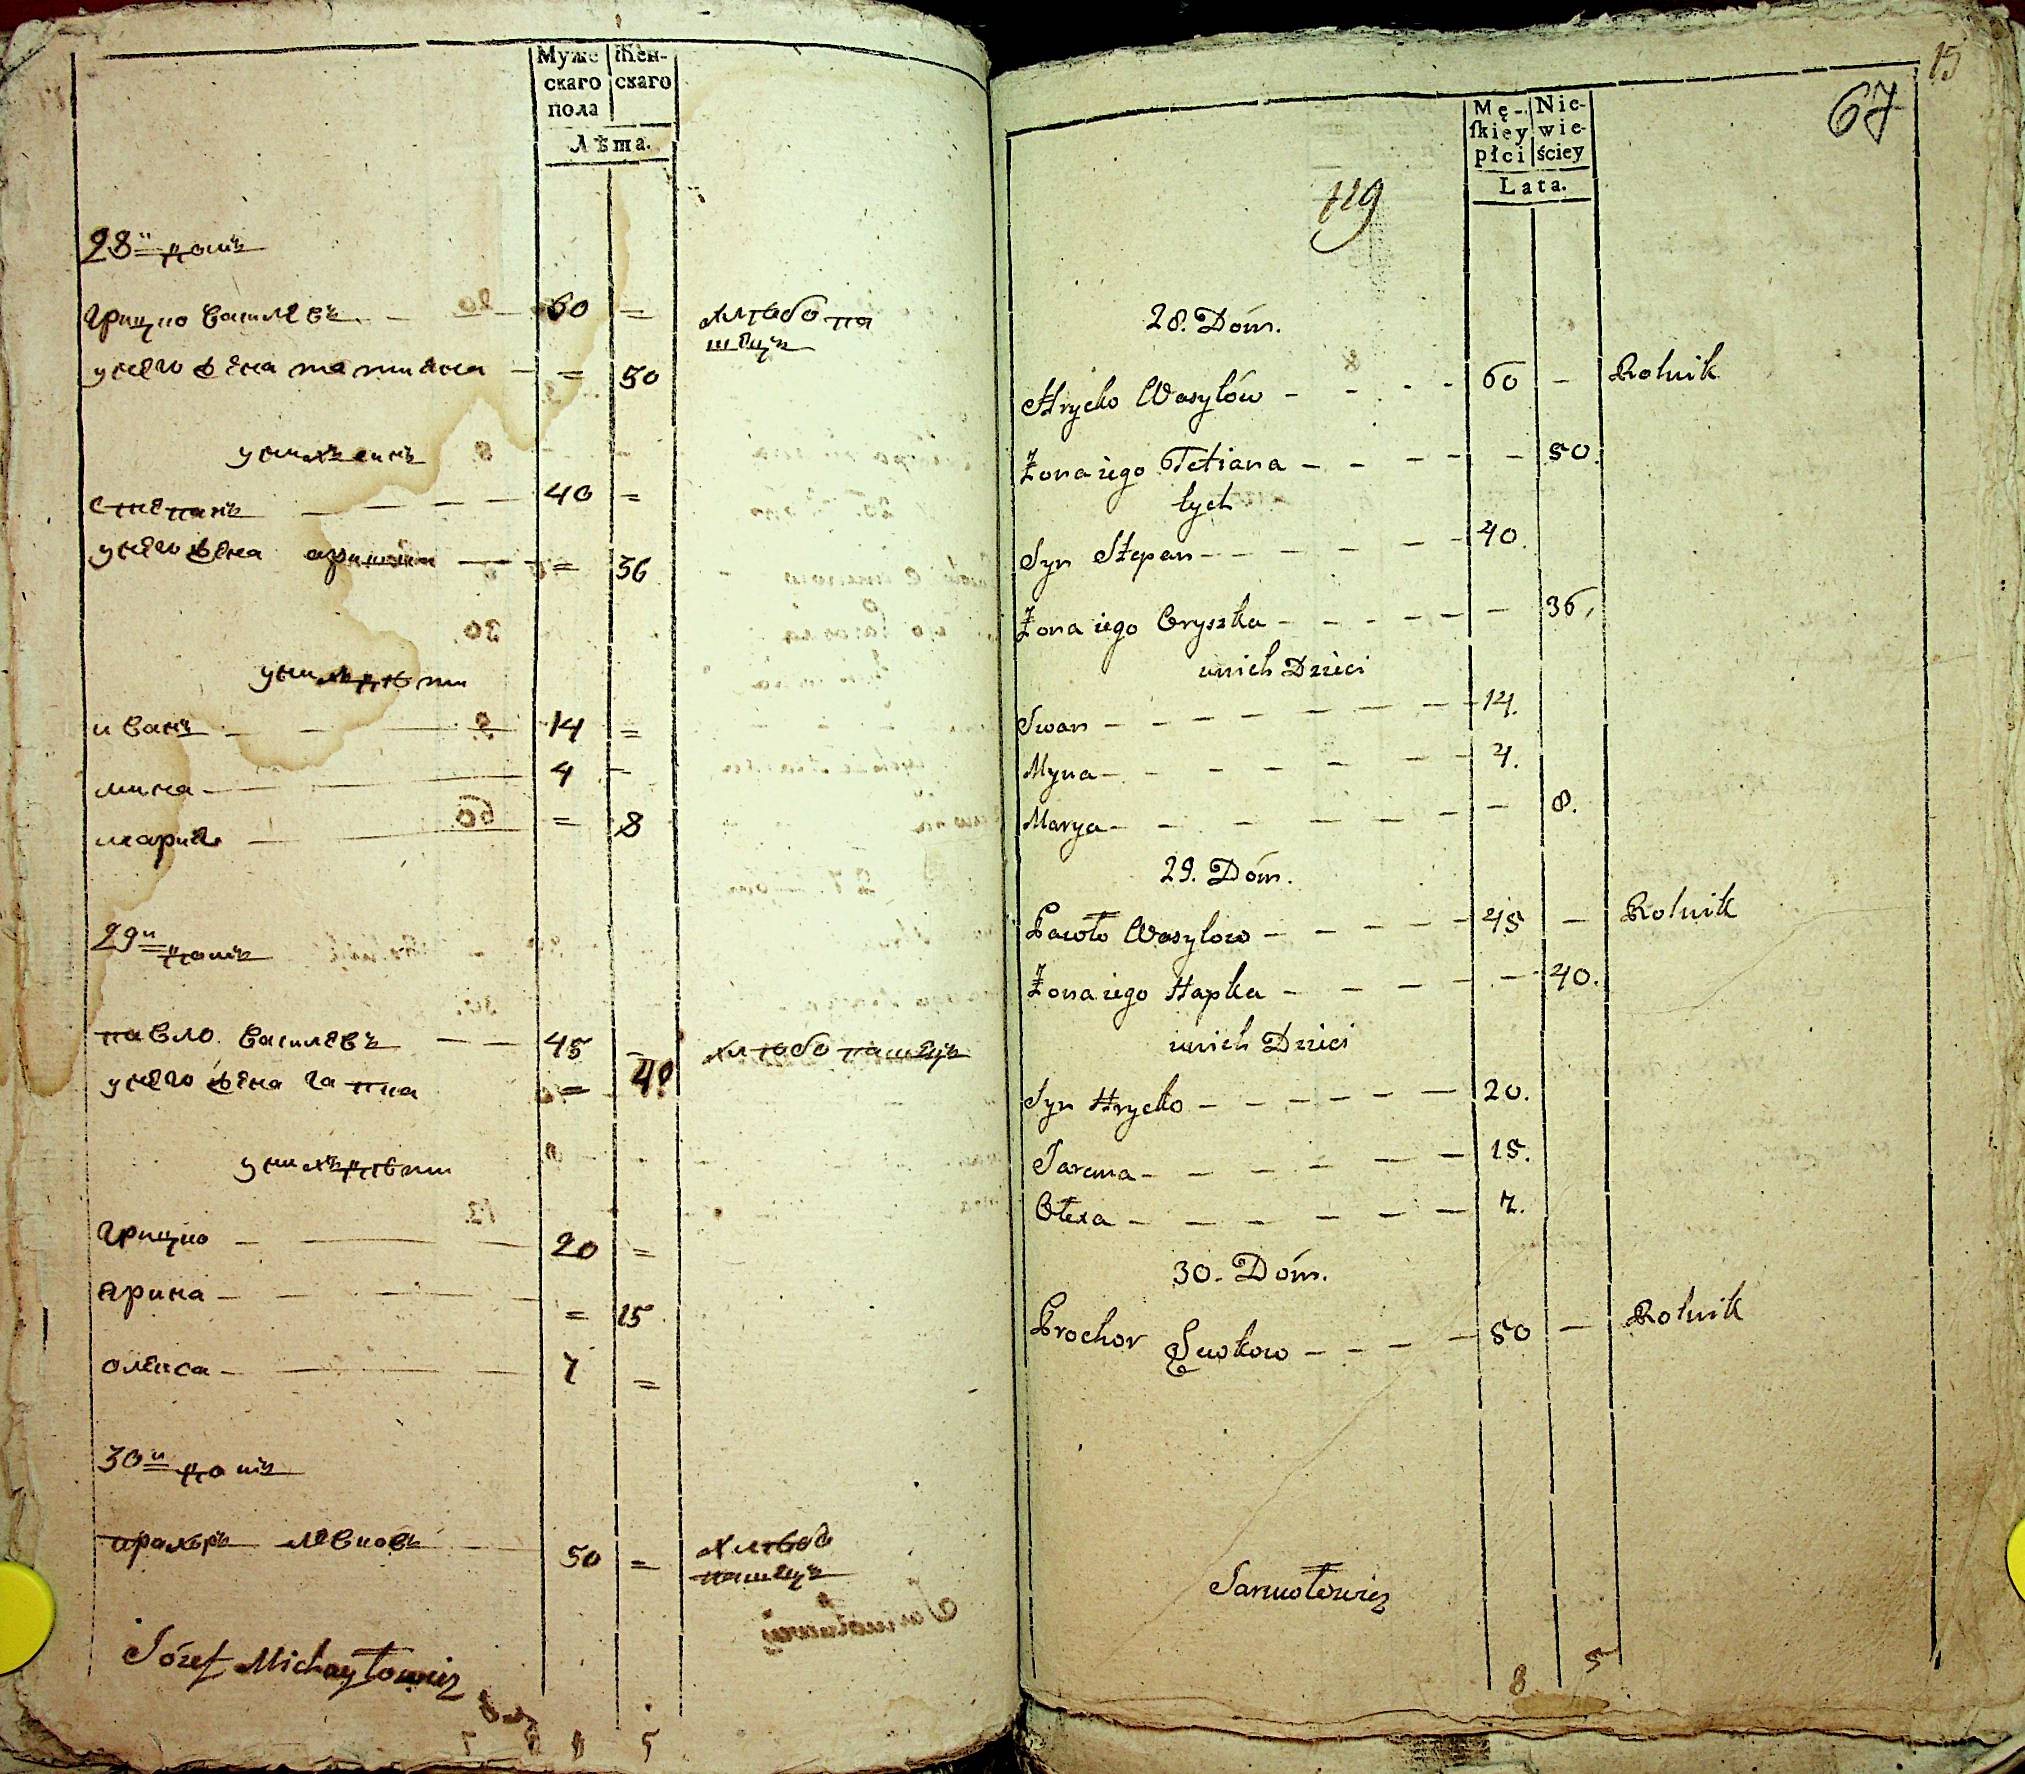 Муже Жен-
скаго скаго
пола
Лѣта.
28й домъ
грицко василевъ 60 = хлѣбопа
шецъ
унего жена татиана = 50
унихъ синъ
степанъ 40 =
унего жена аришка = 36
унихъ дѣти
иванъ 14 =
мина 4 –
мариа = 8
29й домъ
павло василевъ 45 – хлѣбопашецъ
унего жена гапка = 40
унихъ дѣти
грицко 20 =
ярина = 15
олекса 7 =
30й домъ
прохоръ левковъ 50 = хлѣбо
пашецъ
Józef Michayłowicz
8 5
15
67
Mę- Nie-
ſkiey wie-
płci ściey
Lata.
119
28. Dóm.
Hrycko Wasylów 60 – Rolnik
Żona iego Tetiana – 50.
tych
Syn Stepan 40.
Żona iego Oryszka – 36.
unich Dzieci
Iwan 14.
Myna 4.
Marya – 8.
29. Dóm.
Pawło Wasylow 45 – Rolnik
Żona iego Hapka – 40.
unich Dzieci
Syn Hrycko 20.
Jaryna 15.
Ołexa 7.
30. Dóm.
Prochor Lewkow 50 – Rolnik
Jarmołowicz
8 5